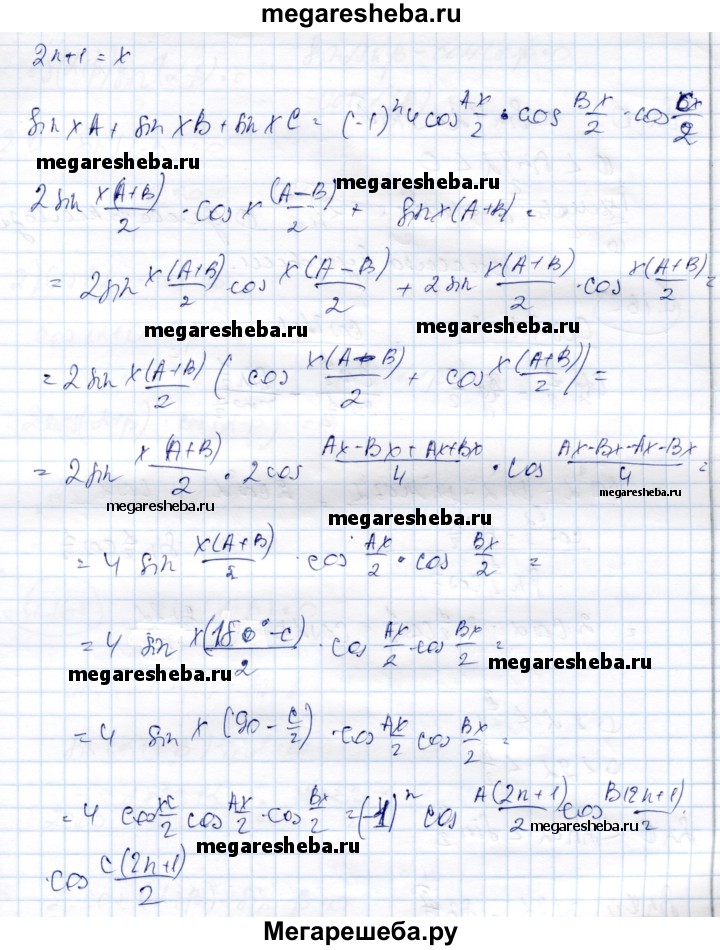 megaresheba.ru
2n+1 = x
sin xA + sin xB + sin xC = (-1)^n 4 cos Ax/2 · cos Bx/2 · cos Cx/2
megaresheba.ru
megaresheba.ru
2 sin x(A+B)/2 · cos x (A-B)/2 + sin x(A+B) =
= 2 sin x(A+B)/2 cos x(A-B)/2 + 2 sin x(A+B)/2 · cos x(A+B)/2 =
megaresheba.ru
megaresheba.ru
= 2 sin x(A+B)/2 ( cos x(A-B)/2 + cos x(A+B)/2 ) =
= 2 sin x(A+B)/2 · 2 cos Ax-Bx+Ax+Bx/4 · cos Ax-Bx-Ax-Bx/4 =
megaresheba.ru
megaresheba.ru
megaresheba.ru
= 4 sin x(A+B)/2 · cos Ax/2 · cos Bx/2 =
= 4 sin x(180°-c)/2 · cos Ax/2 cos Bx/2 =
megaresheba.ru
megaresheba.ru
= 4 sin x (90 - c/2) · cos Ax/2 cos Bx/2 =
= 4 cos xc/2 cos Ax/2 · cos Bx/2 = (-1)^n cos A(2n+1)/2 cos B(2n+1)/2
megaresheba.ru
megaresheba.ru
· cos c(2n+1)/2
Мегарешеба.ру